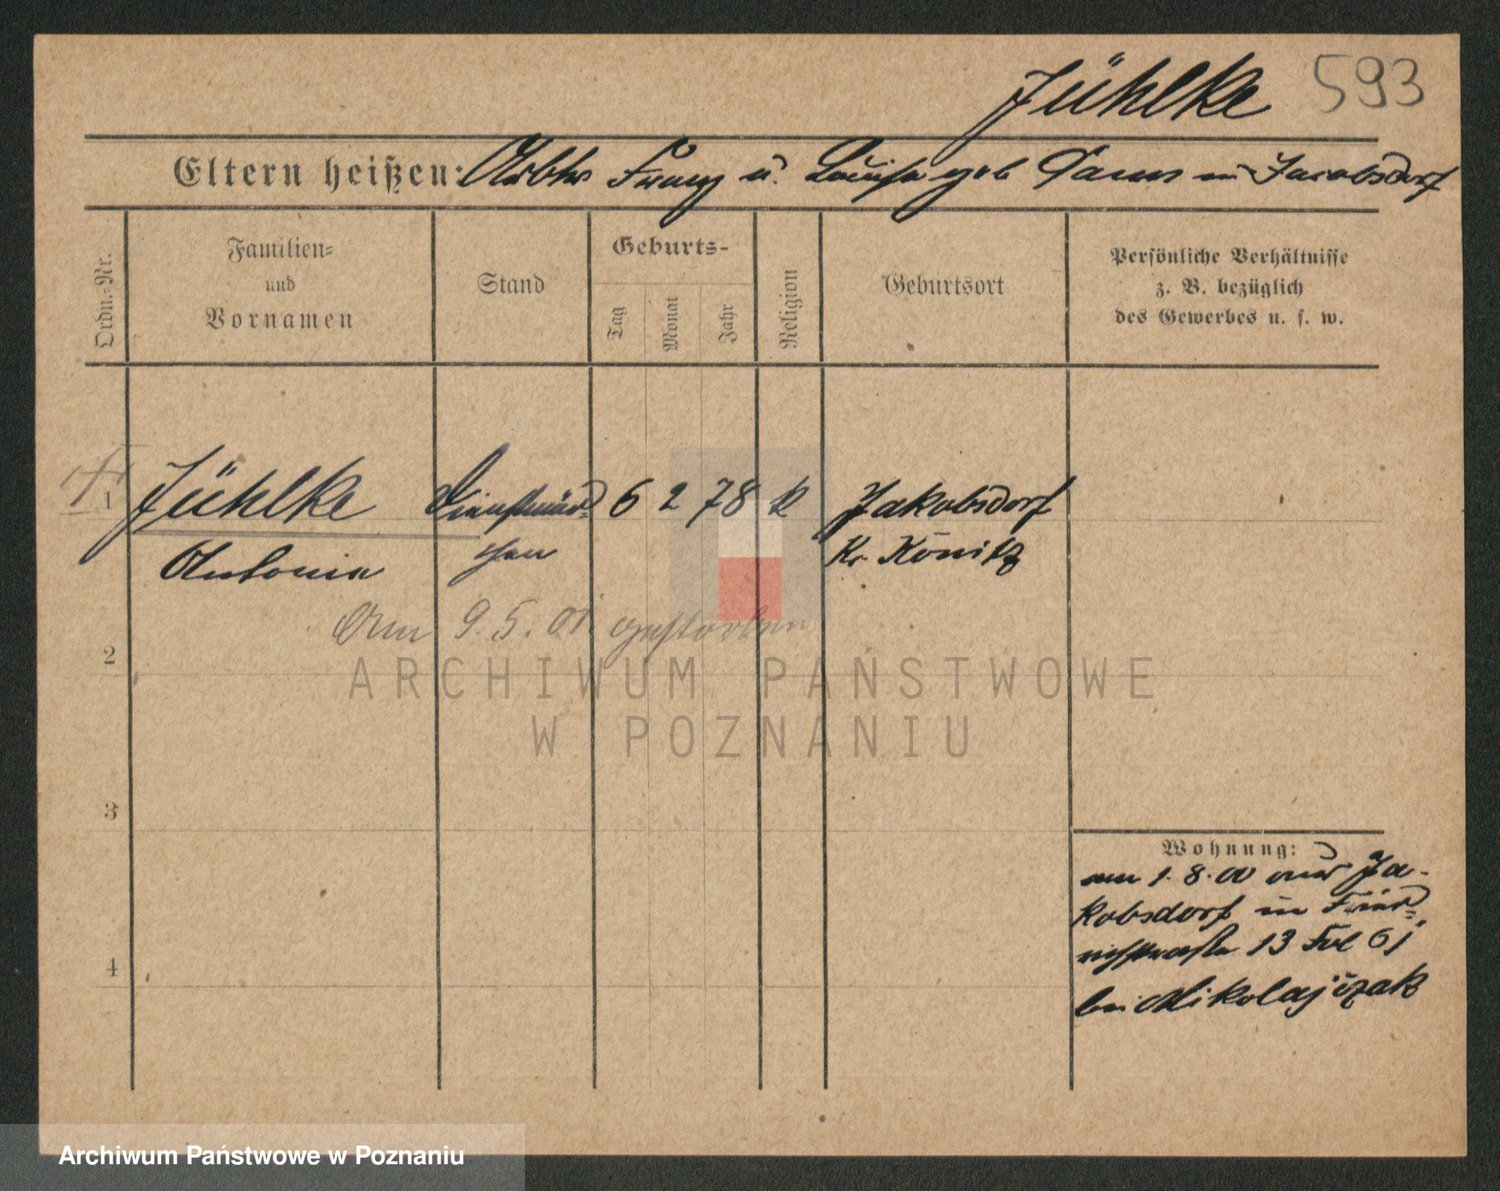 Jühlke 593
Eltern heißen: Arbtr Franz u. Louise geb in Jacobsdorf
Ordn.=Nr.
Familien=
und
Vornamen
Stand
Geburts-
Tag
Monat
Jahr
Religion
Geburtsort
Persönliche Verhältnisse
z. B. bezüglich
des Gewerbes u. s. w.
1 Jühlke Dienstmäd= 6 2 78 k Jakobsdorf
Antonia chen Kr. Könitz
Am 9 5. 01. gestorben
2
3
4
Wohnung:
am 1. 8. 00 aus Ja-
kobsdorf in Fried=
richstraße 13
bei Mikolajczak
ARCHIWUM PAŃSTWOWE
W POZNANIU
Archiwum Państwowe w Poznaniu